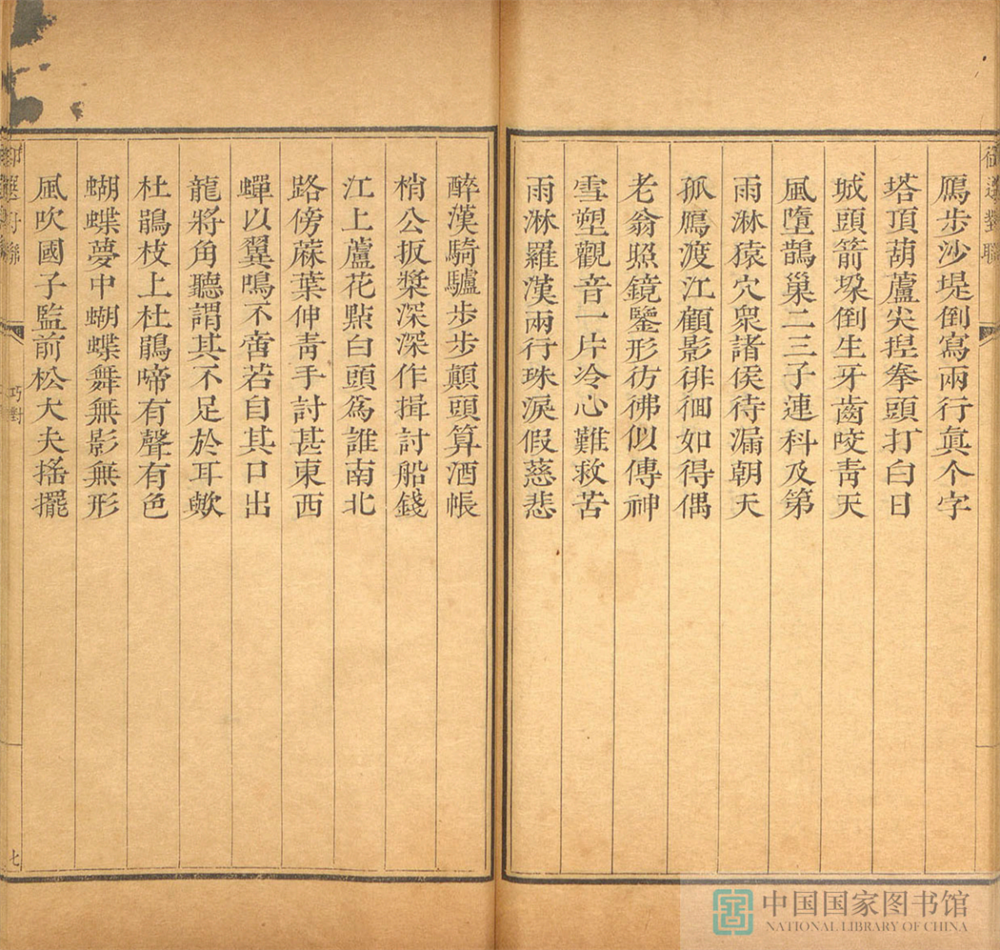 御選對聯
鴈步沙堤倒寫兩行眞个字
塔頂葫蘆尖揑拳頭打白日
城頭箭垜倒生牙齒咬靑天
風墮鵲巢二三子連科及第
雨淋猿穴衆諸侯待漏朝天
孤鴈渡江顧影徘徊如得偶
老翁照鏡鑒形彷彿似傳神
雪塑觀音一片冷心難救苦
雨淋羅漢兩行珠淚假慈悲
醉漢騎驢步步顚頭算酒帳
梢公扳槳深深作揖討船錢
江上蘆花點白頭爲誰南北
路傍蔴葉伸靑手討甚東西
蟬以翼鳴不啻若自其口出
龍將角聽謂其不足於耳歟
杜鵑枝上杜鵑啼有聲有色
蝴蝶夢中蝴蝶舞無影無形
風吹國子監前松大夫搖擺
巧對
七
中国国家图书馆
NATIONAL LIBRARY OF CHINA